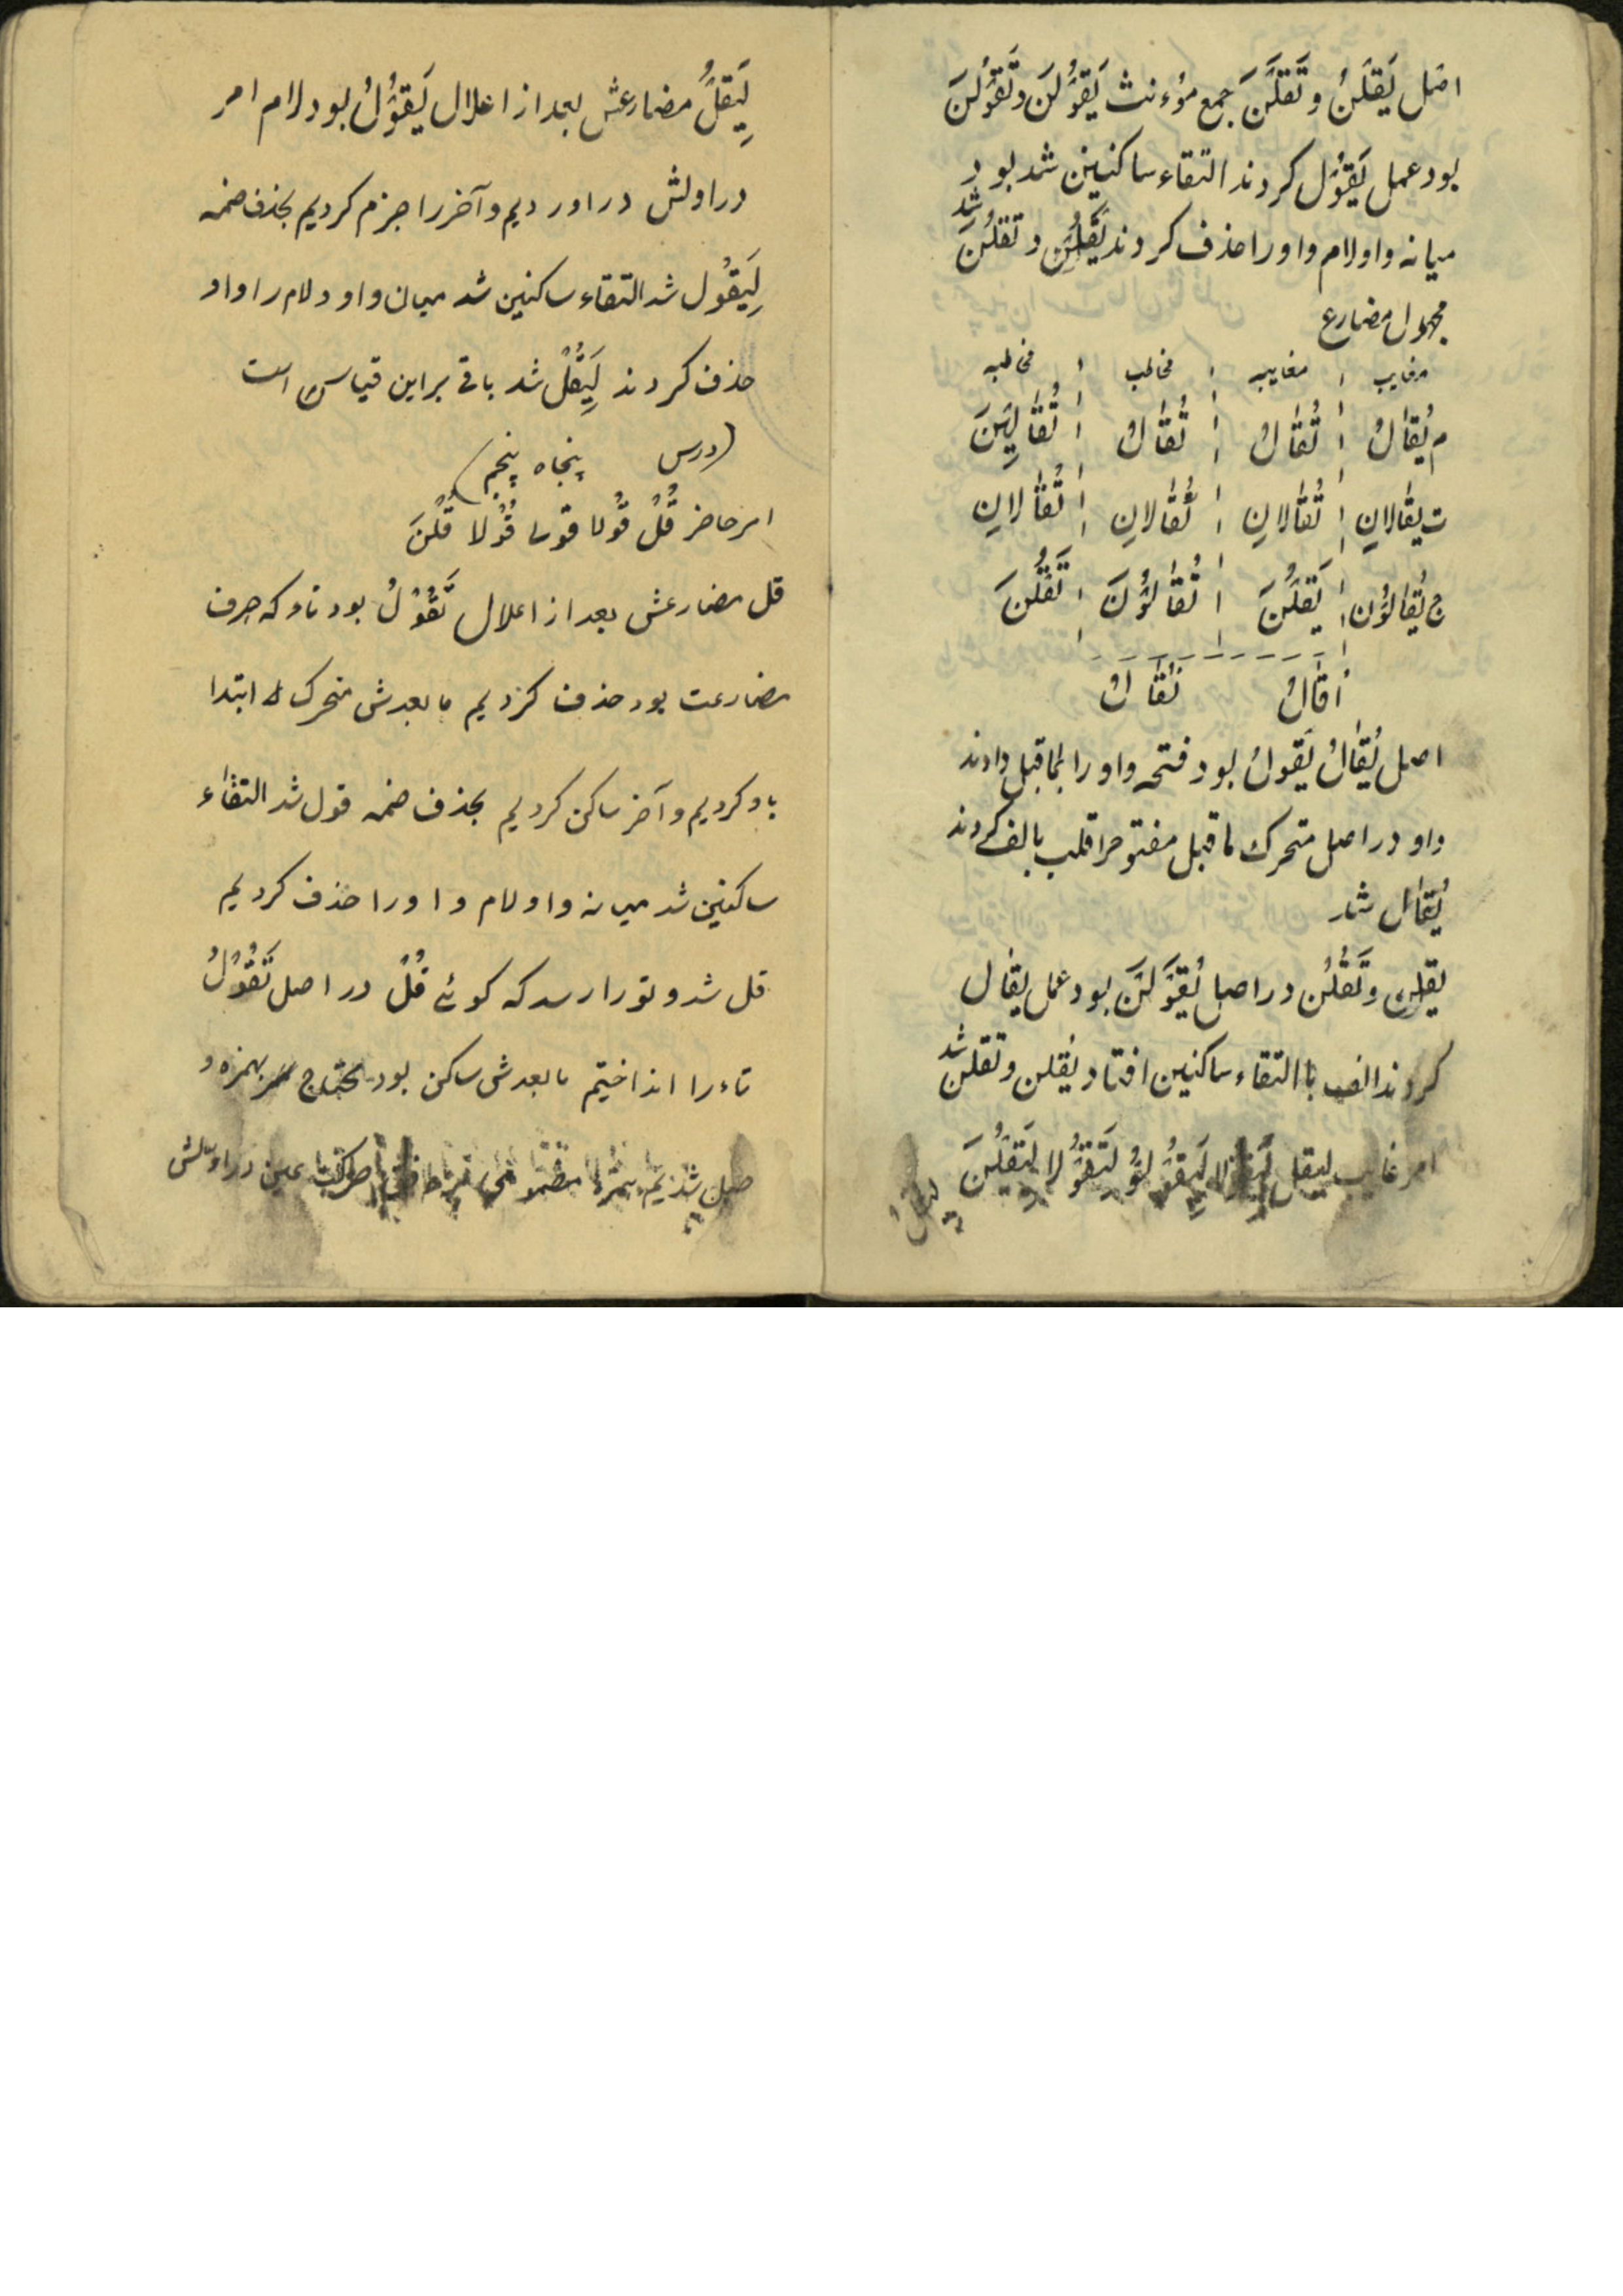 اصل یَقُلْنَ وتَقُلْنَ جمع مؤنث یَقْوُلْنَ وتَقْوُلْنَ
بود عمل یَقْوُل کردند التقاء ساکنین شد بود
میانه واو ولام واو را حذف کردند یَقُلْنَ و تَقُلْنَ شد
مجهول مضارع
مغایب مغایبه مخاطب مخاطبه
م یُقالُ تُقالُ تُقالُ تُقالِینَ
ت یقالانِ تُقالانِ تُقالانِ تُقالانِ
ج یُقالُونَ یَقُلْنَ تُقالُونَ تَقُلْنَ
اُقالُ نُقالُ
اصل یُقالُ یُقولُ بود فتحه واو را بماقبل دادند
واو در اصل متحرک ماقبل مفتوح را قلب بالف کردند
یُقال شد
یقلن وتَقُلْن در اصل یُقْوَلْنَ بود عمل یقال
کردند الف با التقاء ساکنین افتاد یُقلن وتقلن شد
امر غایب لیقل لِیَقُولا لِیَقُولُو لِتَقُولا لِیَقُلْنَ
لِیَقُلْ مضارعش بعد از اعلال یَقُوْلُ بود لام امر
در اولش در اوردیم وآخر را جزم کردیم بحذف ضمه
لِیَقُول شد التقاء ساکنین شد میان واو ولام را واو
حذف کردند لِیَقُلْ شد باقی براین قیاس است
(درس پنجاه پنجم)
امر حاضر قُلْ قُولا قولی قُولا قُلْنَ
قل مضارعش بعد از اعلال تَقُوْلُ بود تاء که حرف
مضارعت بود حذف کردیم مابعدش متحرک ابتدا
باو کردیم وآخر ساکن کردیم بحذف ضمه قول شد التقاء
ساکنین شد میانه واو لام واو را حذف کردیم
قل شد وتو را رسد که گوئی قُلْ در اصل تَقْوُلُ
تاء را انداختیم مابعدش ساکن بود محتاج بهمزه و
عین در اولش